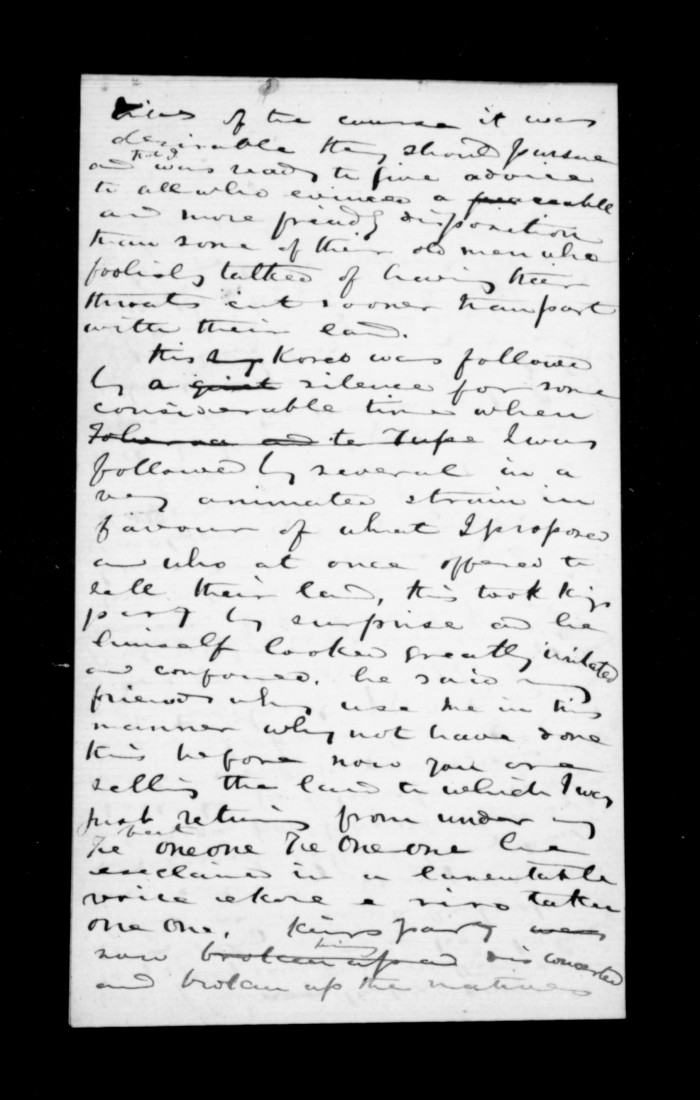 of the course it was
desirable they should pursue
told
and was ready to give advice
to all who evinced a peaceable
and more friendly disposition
than some of their old men who
foolishly talked of having their
throats cut sooner than part
with their land.
this Korero was followed
by a quiet silence for some
considerable time when
te Tupe I was
followed by several in a
very animated strain in
favour of what I proposed
and who at once offered to
sell their land, this took Kings
party by surprise and he
himself looked greatly irritated
and confused. he said my
friends why use me in this
manner why not have done
this before now you are
selling the land to which I was
just retiring from under my
feet
Te oneone Te Oneone he
exclaimed in a lamentable
voice ekore e riro taku
one one. Kings party was
now broken up and disconcerted
and broken up the natives